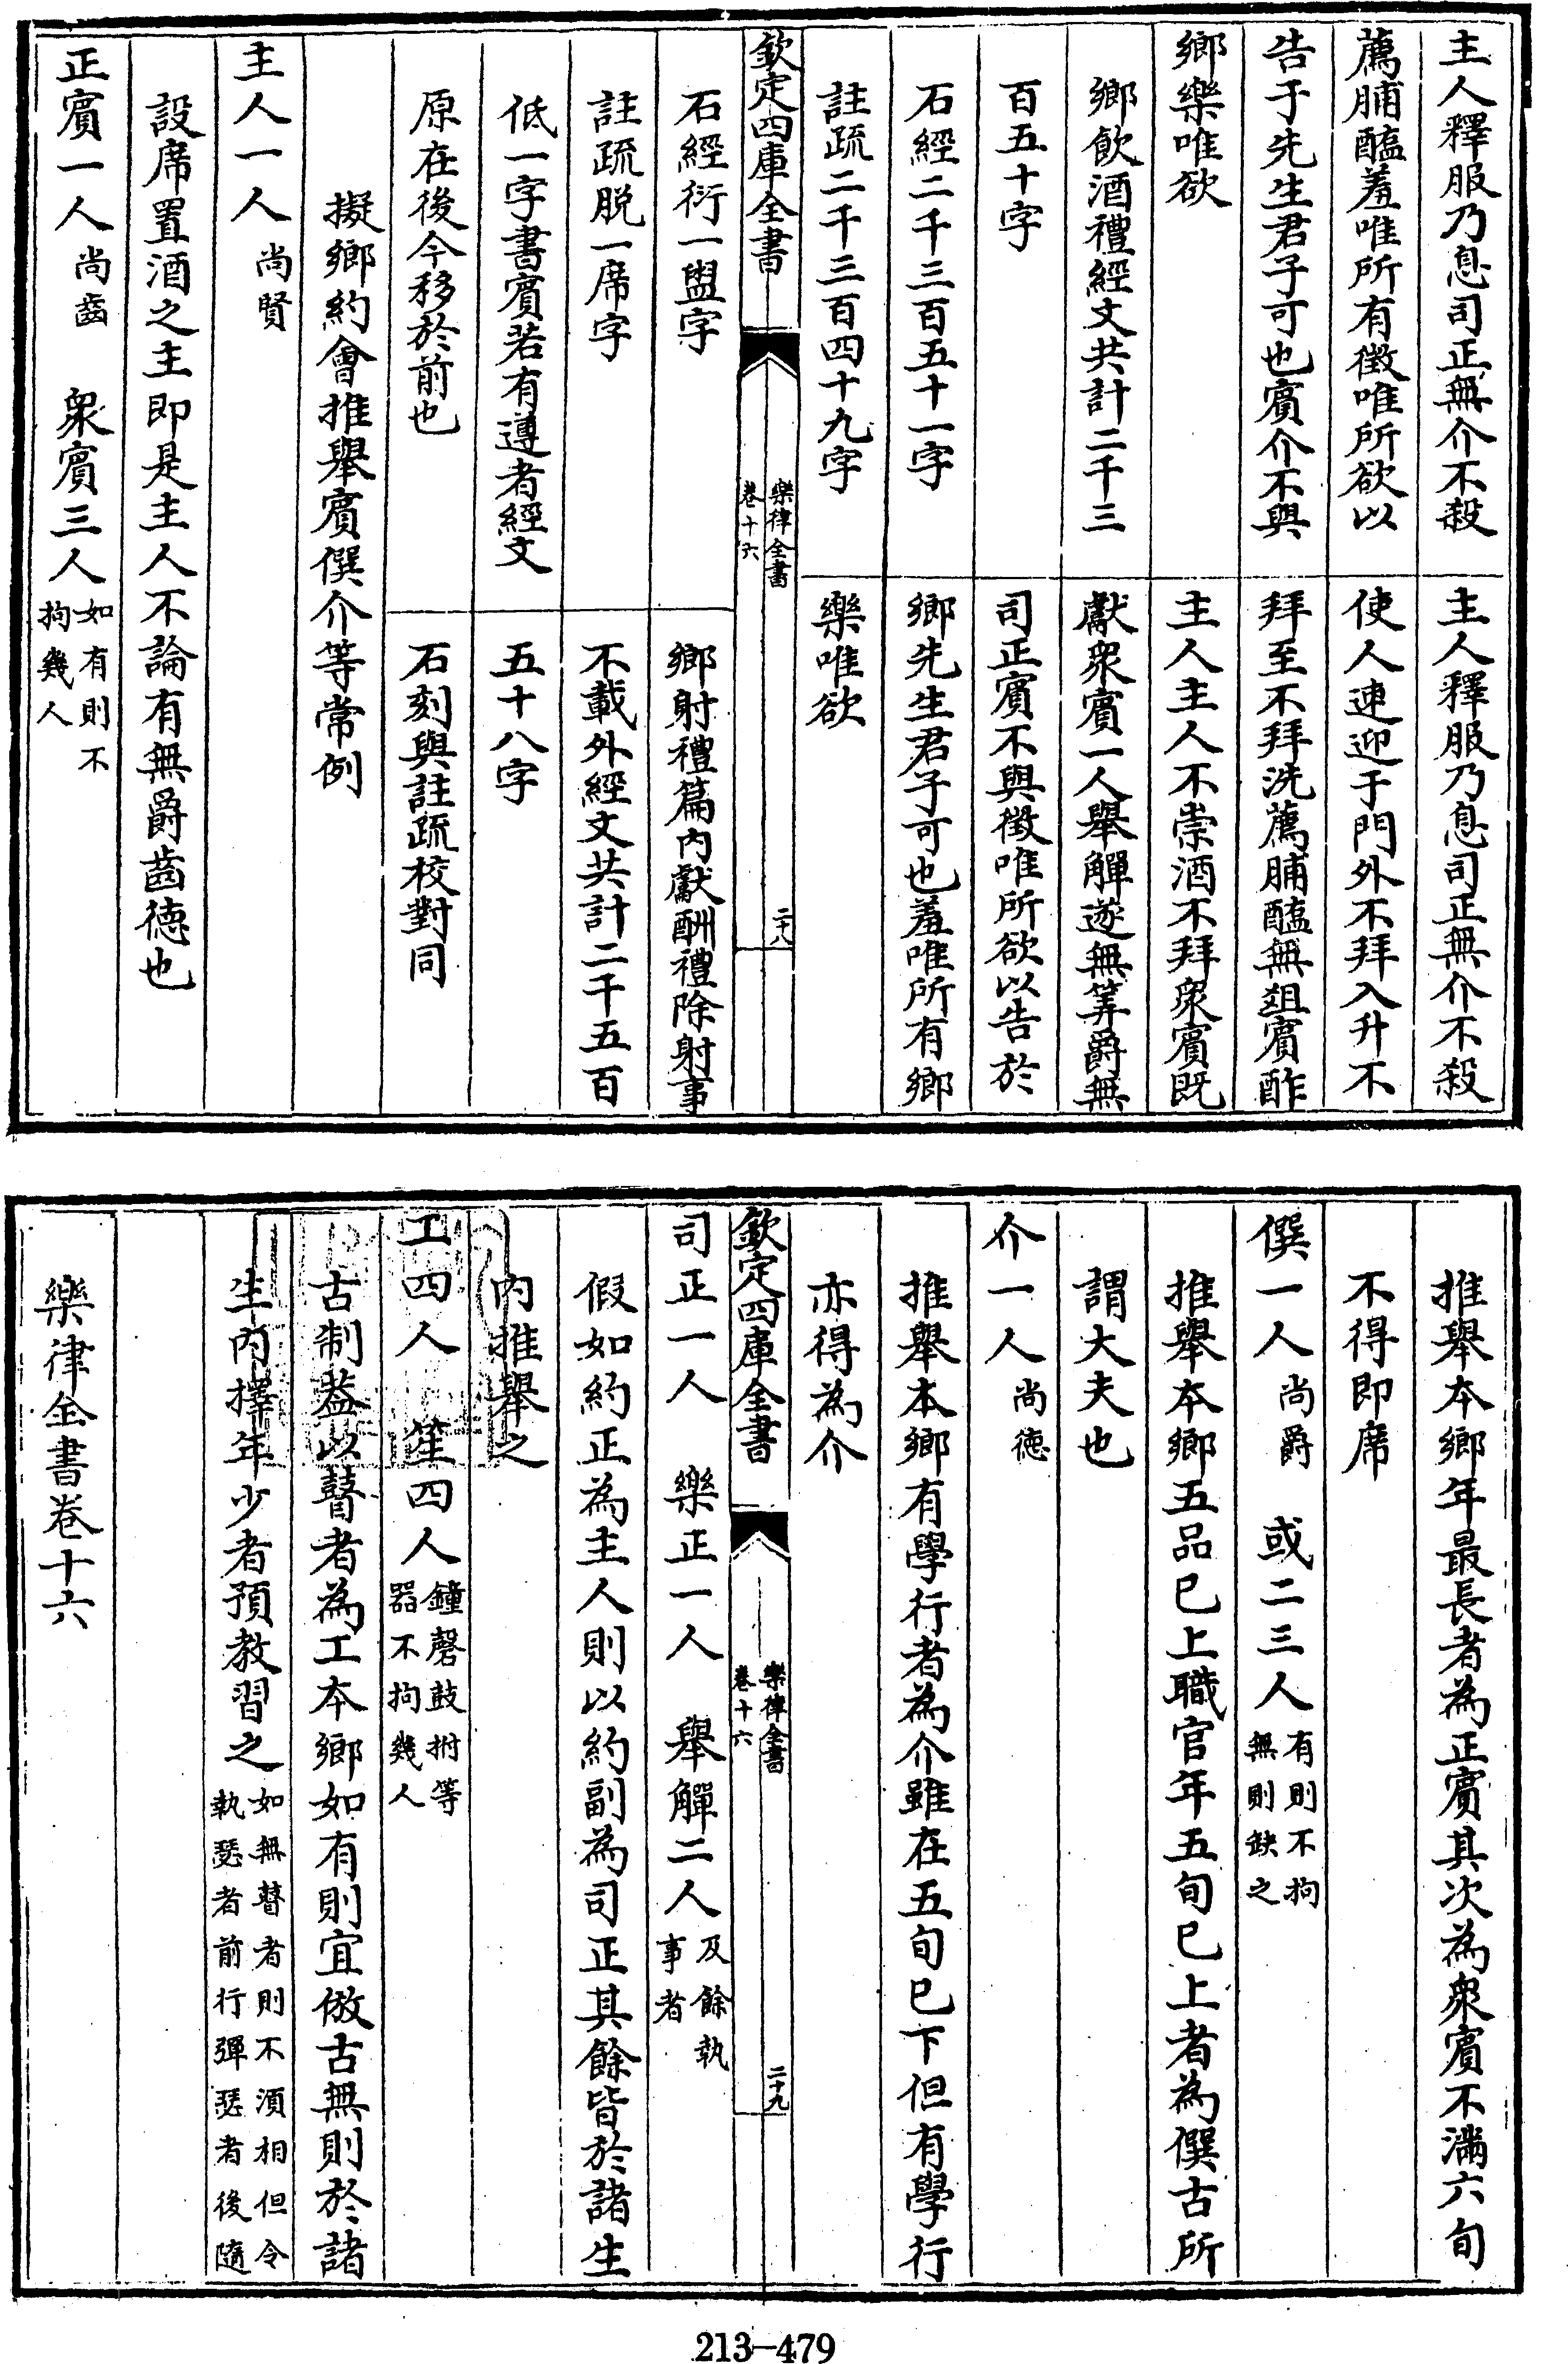 主人釋服乃息司正無介不殺
薦脯醢羞唯所有徵唯所欲以
告于先生君子可也賓介不與
鄉樂唯欲
鄉飲酒禮經文共計二千三
百五十字
石經二千三百五十一字
註疏二千三百四十九字
主人釋服乃息司正無介不殺
使人速迎于門外不拜入升不
拜至不拜洗薦脯醢無俎賓酢
主人主人不崇酒不拜衆賓既
獻衆賓一人舉觶遂無筭爵無
司正賓不與徵唯所欲以告於
鄉先生君子可也羞唯所有鄉
樂唯欲
欽定四庫全書
樂律全書
卷十六
二十八
石經衍一盥字
註疏脱一席字
低一字書賓若有遵者經文
原在後今移於前也
鄉射禮篇内獻酬禮除射事
不載外經文共計二千五百
五十八字
石刻與註疏校對同
擬鄉約會推舉賓僎介等常例
主人一人尚賢
設席置酒之主即是主人不論有無爵齒德也
正賓一人尚齒 衆賓三人如有則不拘幾人
推舉本鄉年最長者為正賓其次為衆賓不滿六旬
不得即席
僎一人尚爵 或二三人有則不拘無則缺之
推舉本鄉五品已上職官年五旬已上者為僎古所
謂大夫也
介一人尚德
推舉本鄉有學行者為介雖在五旬已下但有學行
亦得為介
欽定四庫全書
樂律全書
卷十六
二十九
司正一人 樂正一人 舉觶二人及餘執事者
假如約正為主人則以約副為司正其餘皆於諸生
内推舉之
工四人 笙四人鐘磬鼓拊等器不拘幾人
古制葢以瞽者為工本鄉如有則宜倣古無則於諸
生内擇年少者預教習之如無瞽者則不須相但令執瑟者前行彈瑟者後隨
樂律全書卷十六
213-479